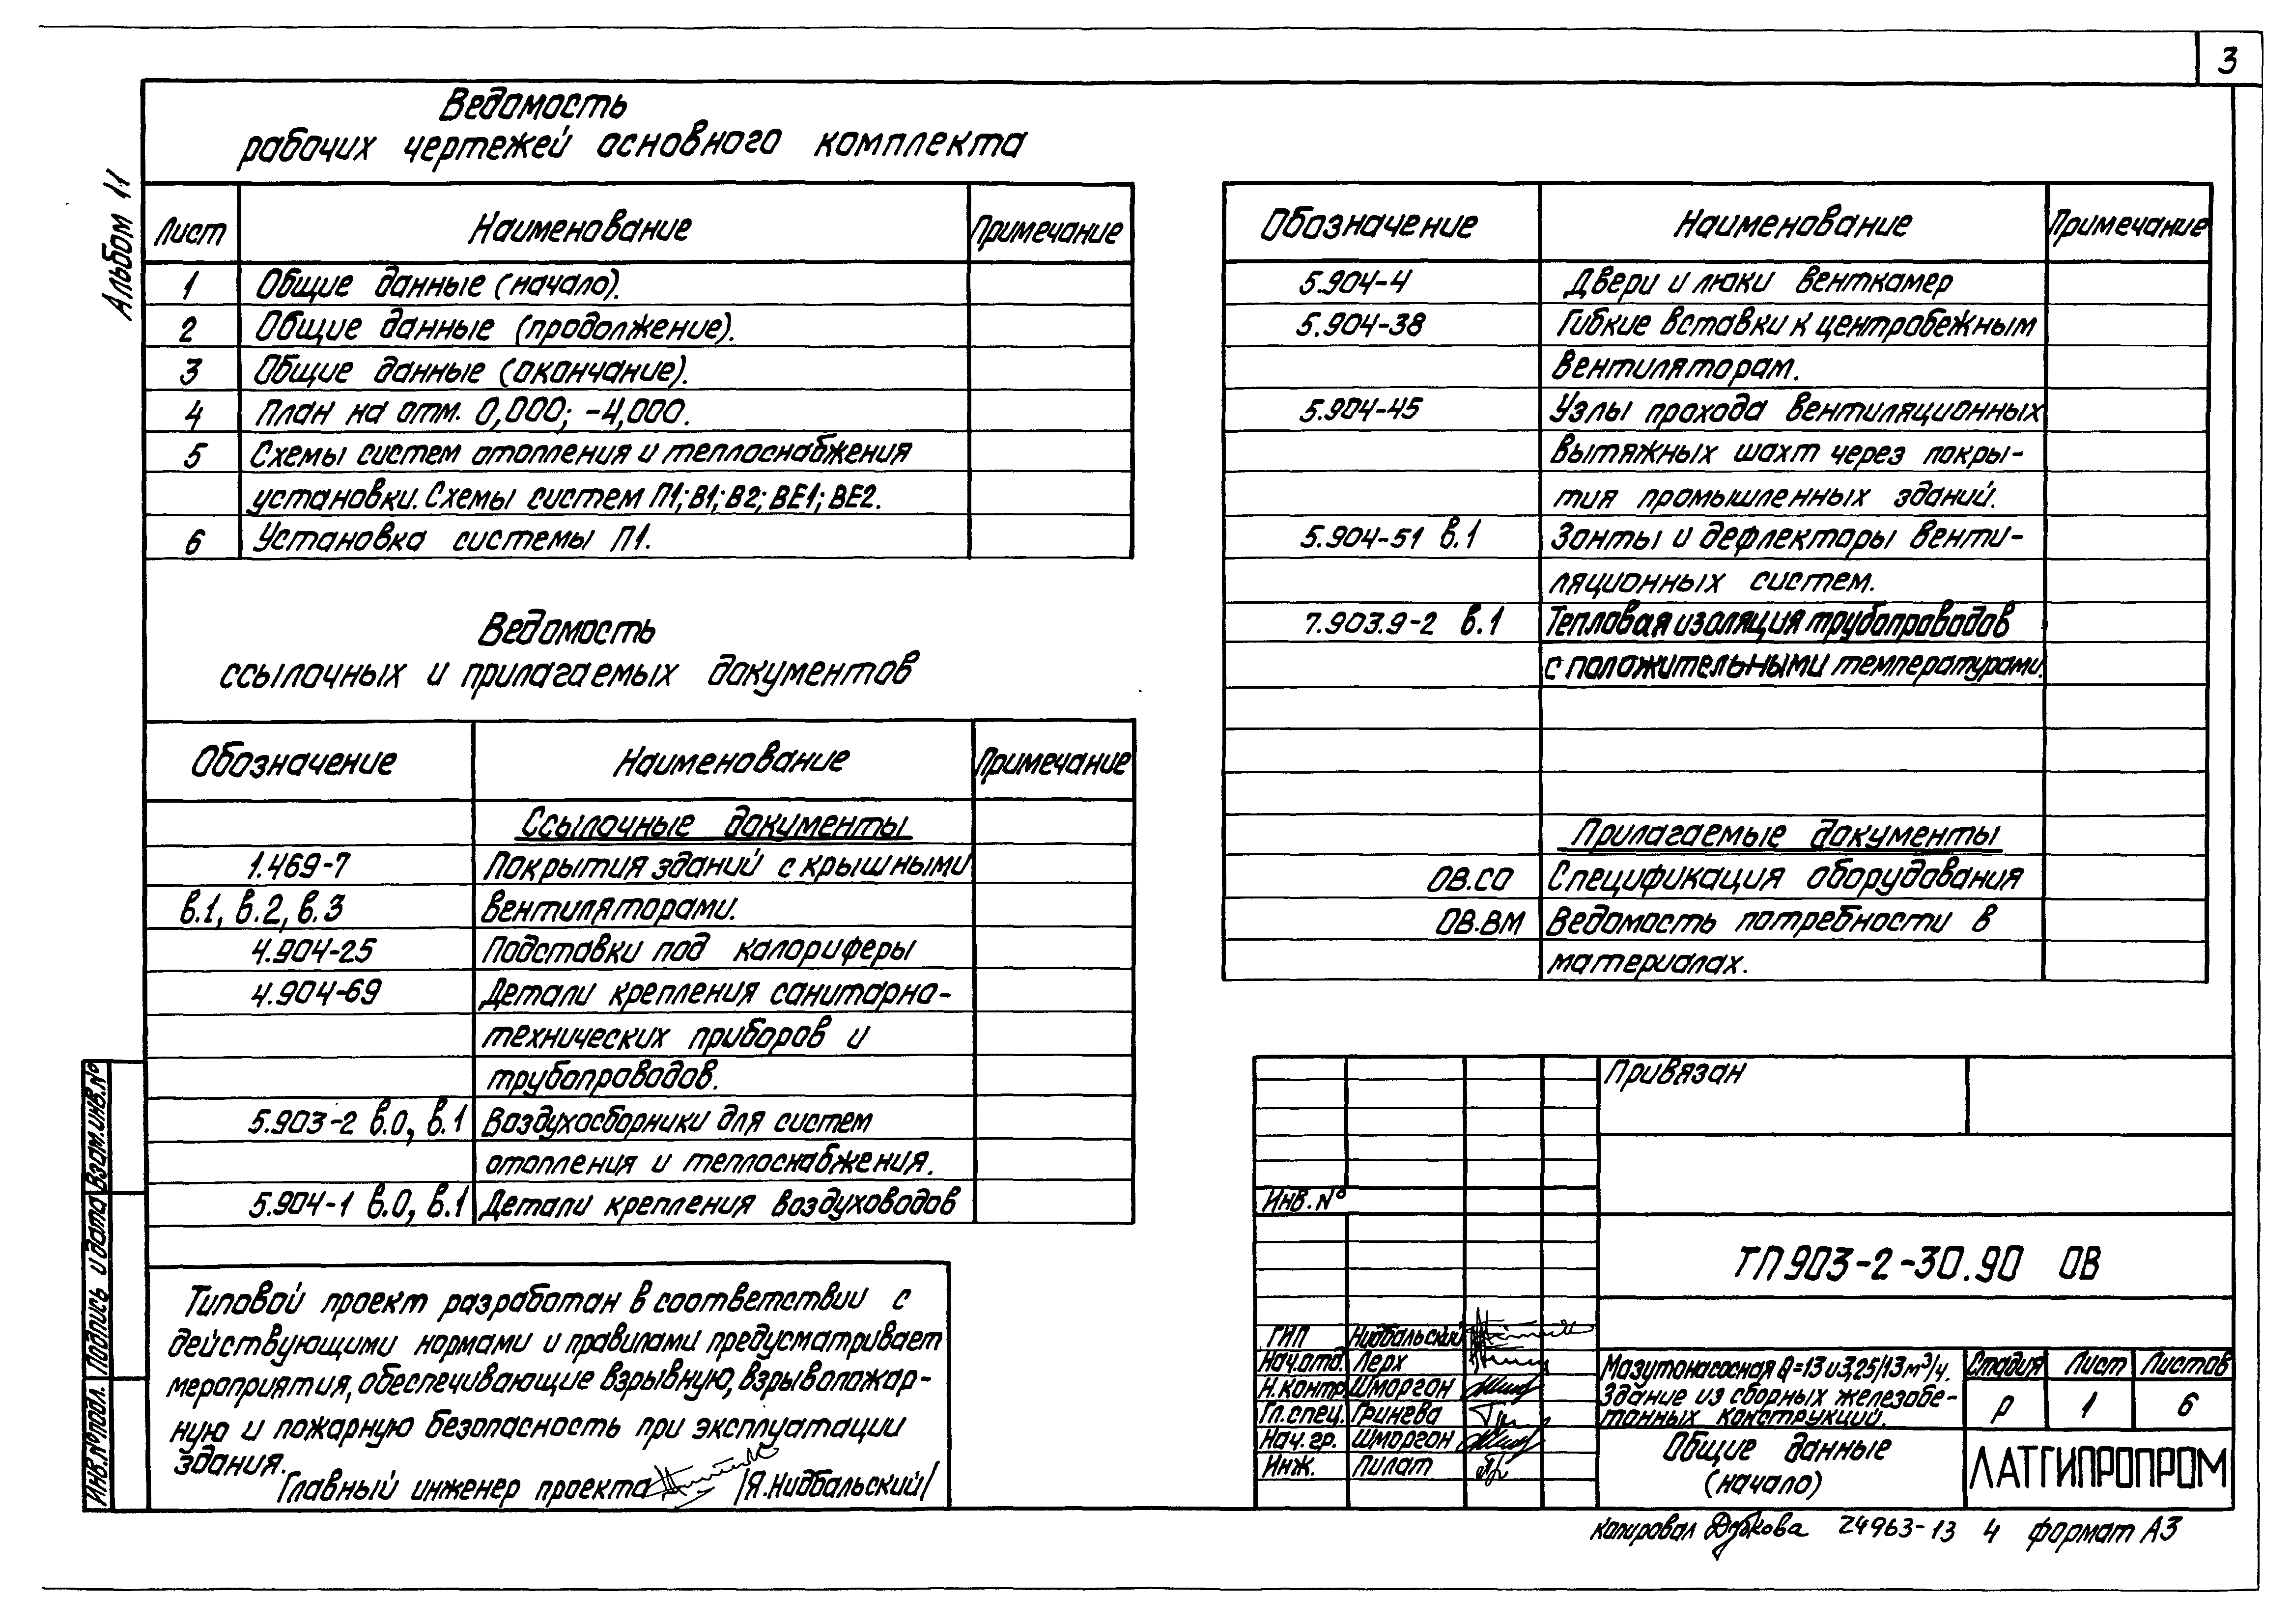 3
Альбом 11
Ведомость
рабочих чертежей основного комплекта
Лист Наименование Примечание
1 Общие данные (начало).
2 Общие данные (продолжение).
3 Общие данные (окончание).
4 План на отм. 0,000; -4,000.
5 Схемы систем отопления и теплоснабжения
установки. Схемы систем П1; В1; В2; ВЕ1; ВЕ2.
6 Установка системы П1.
Ведомость
ссылочных и прилагаемых документов
Обозначение Наименование Примечание
Ссылочные документы
1.469-7 Покрытия зданий с крышными
в.1, в.2, в.3 вентиляторами.
4.904-25 Подставки под калориферы
4.904-69 Детали крепления санитарно-
технических приборов и
трубопроводов.
5.903-2 в.0, в.1 Воздухосборники для систем
отопления и теплоснабжения.
5.904-1 в.0, в.1 Детали крепления воздуховодов
Типовой проект разработан в соответствии с
действующими нормами и правилами предусматривает
мероприятия, обеспечивающие взрывную, взрывопожар-
ную и пожарную безопасность при эксплуатации
здания.
Главный инженер проекта /Я.Нидбальский/
Обозначение Наименование Примечание
5.904-4 Двери и люки венткамер
5.904-38 Гибкие вставки к центробежным
вентиляторам.
5.904-45 Узлы прохода вентиляционных
вытяжных шахт через покры-
тия промышленных зданий.
5.904-51 в.1 Зонты и дефлекторы венти-
ляционных систем.
7.903.9-2 в.1 Тепловая изоляция трубопроводов
с положительными температурами.
Прилагаемые документы
ОВ.СО Спецификация оборудования
ОВ.ВМ Ведомость потребности в
материалах.
Привязан
Инв. №
ТП 903-2-30.90 ОВ
ГИП Нидбальский
Нач.отд. Лерх
Н.контр. Шморгон
Гл.спец. Гринева
Нач.гр. Шморгон
Инж. Пилат
Мазутонасосная Q=13 и 3,25/13 м³/ч.
Здание из сборных железобе-
тонных конструкций.
Стадия Лист Листов
Р 1 6
Общие данные
(начало)
ЛАТГИПРОПРОМ
Инв.№ подл. Подпись и дата Взам.инв.№
копировал Дубкова 24963-13 4 формат А3